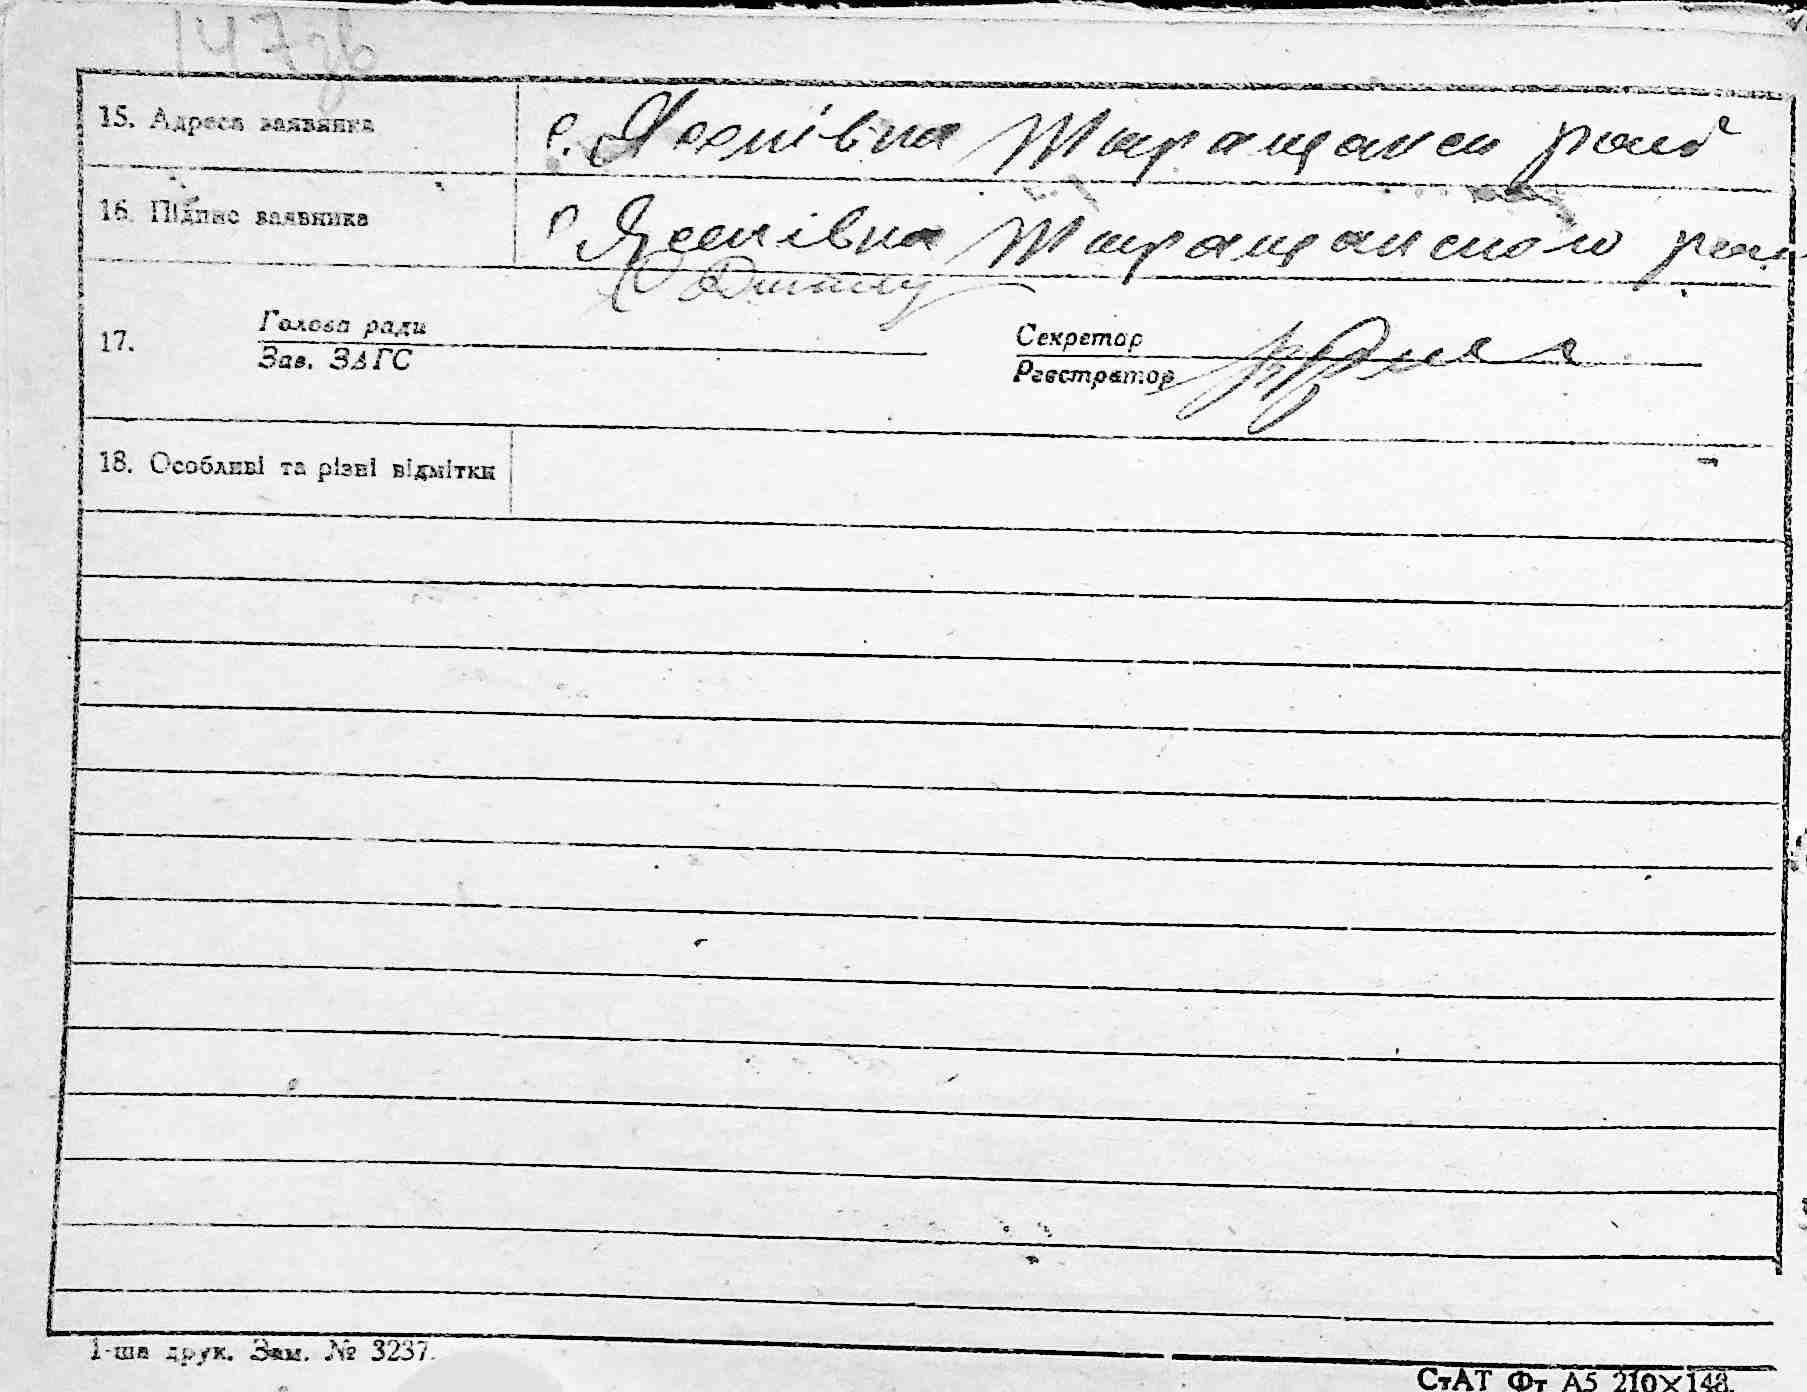 147зв
15. Адреса заявника с. Леснівка Таращанск рай
16. Підпис заявника с. Леснівка Таращанского рай
Голова ради
17.
Зав. ЗАГС
Секретар
Реєстратор
18. Особливі та різні відмітки
1-ша друк. Зам. № 3237.
СтАТ Фт А5 210×148.